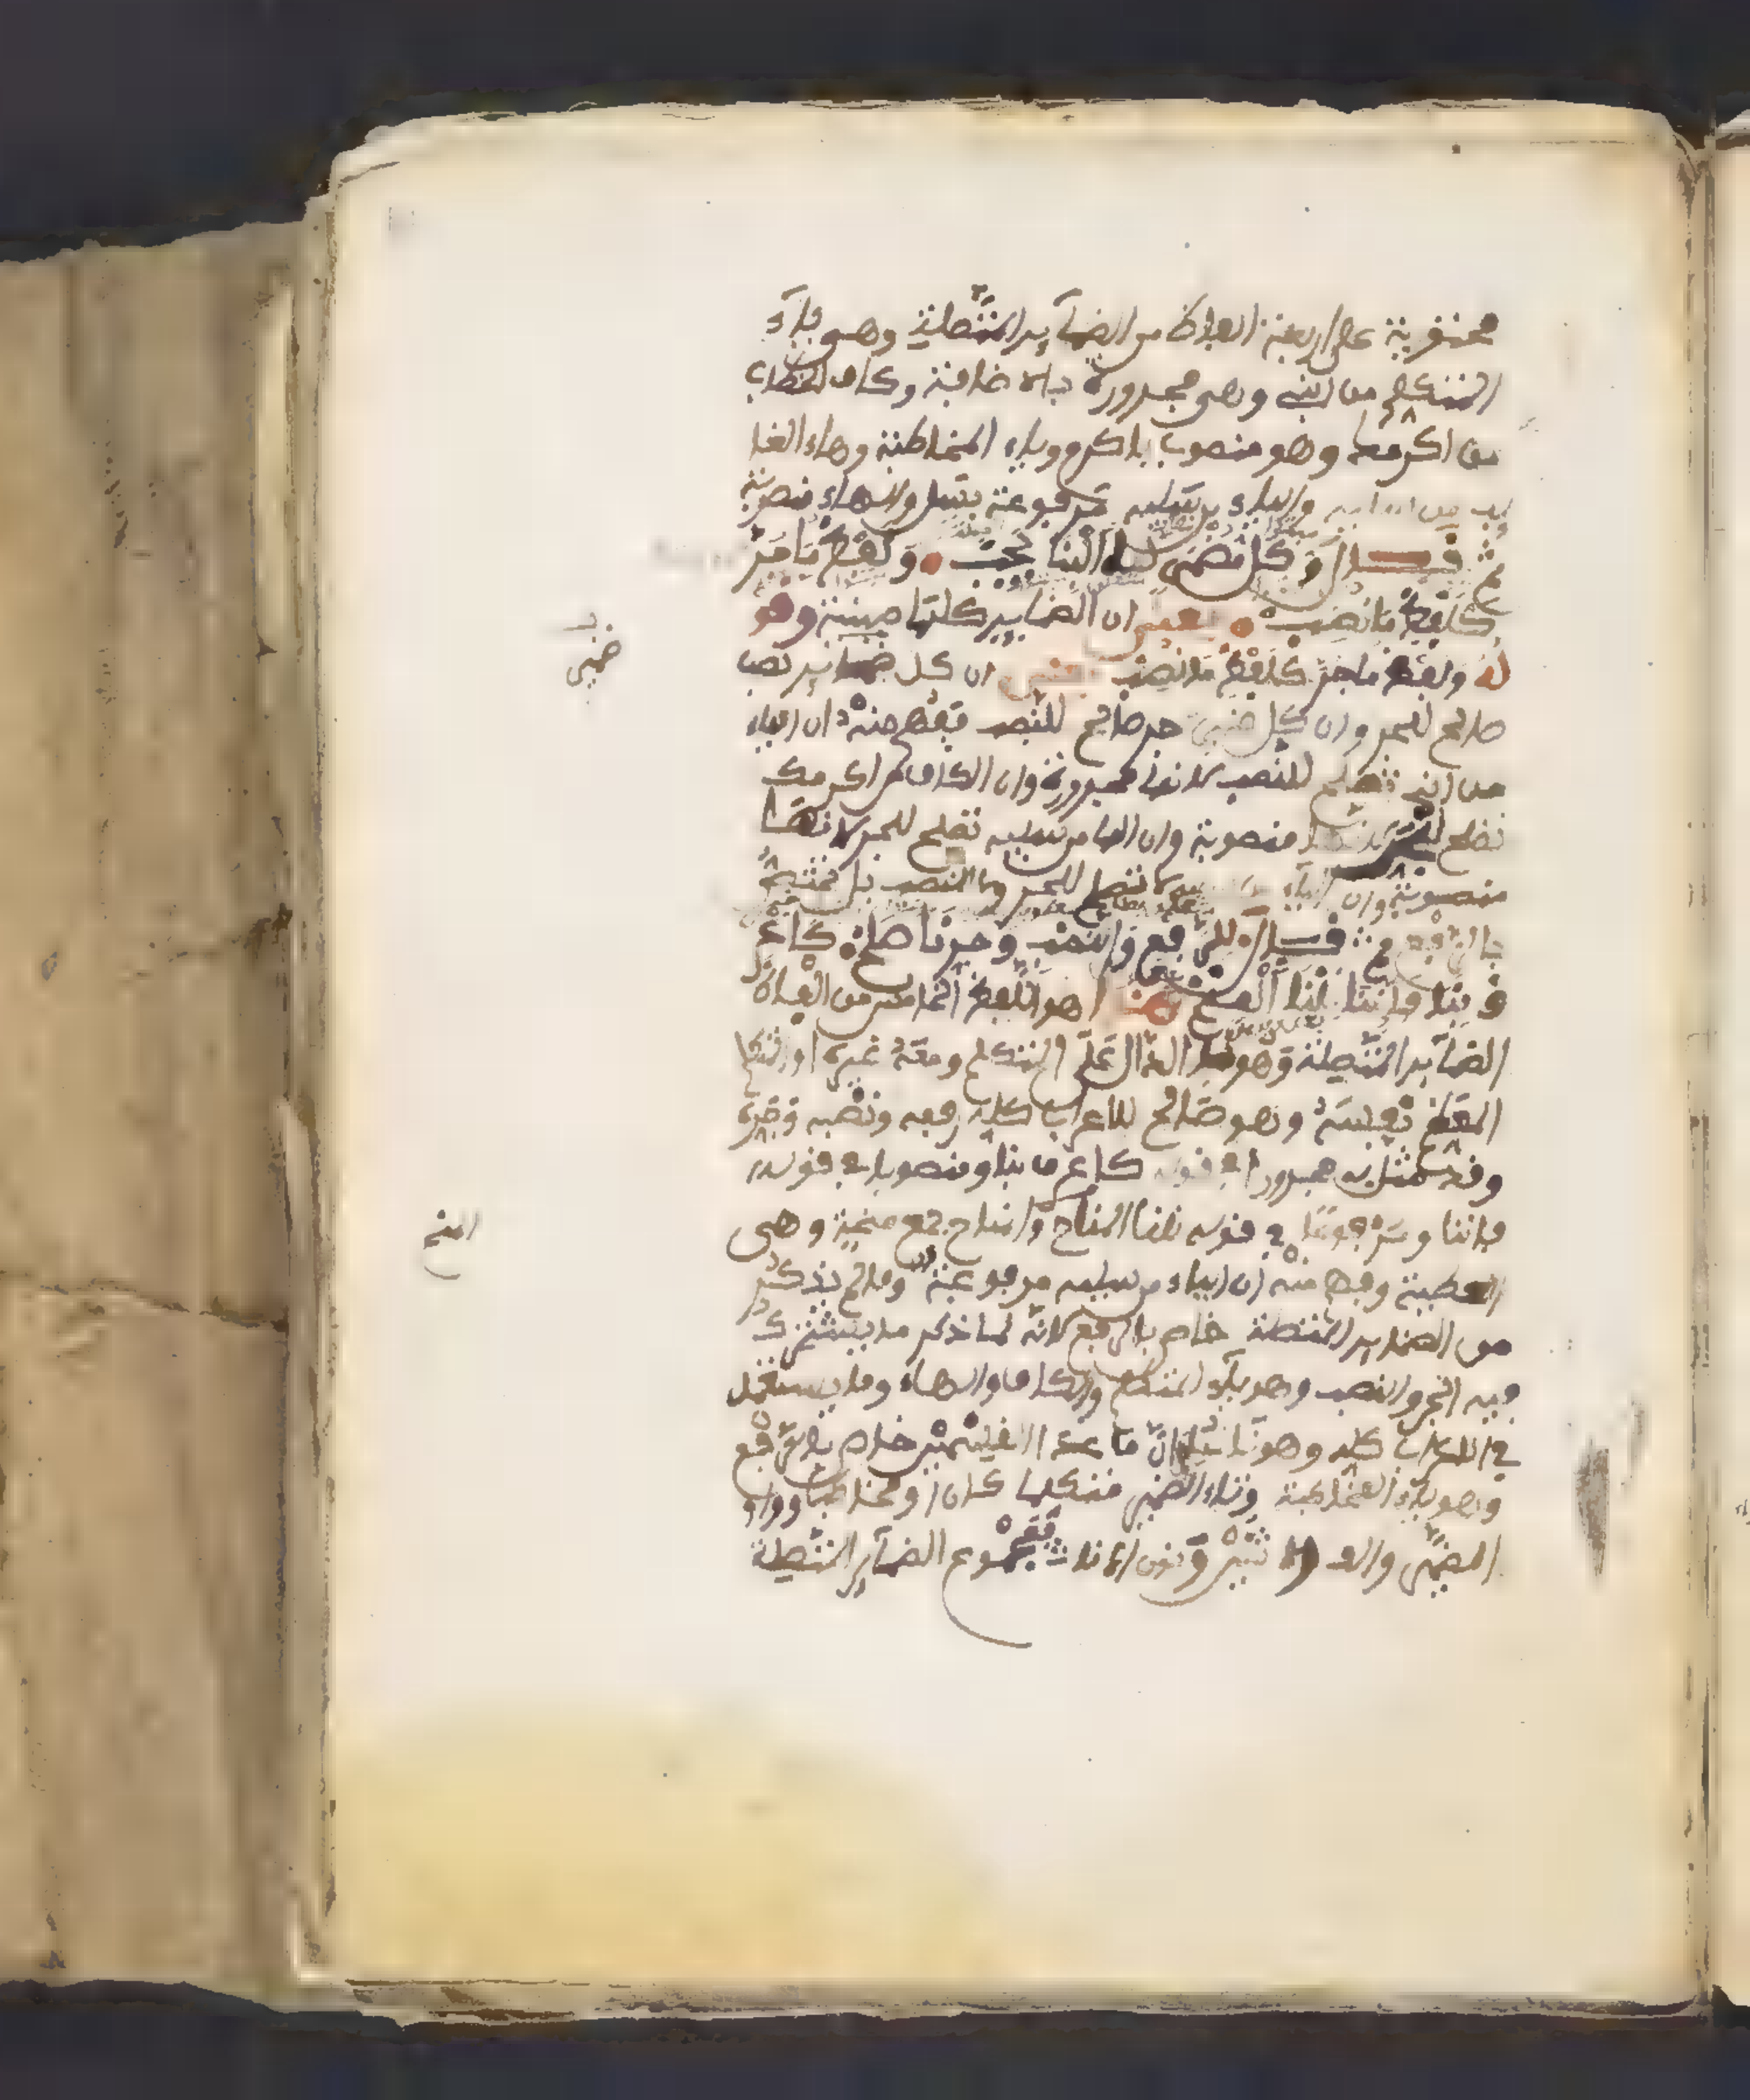 محتوية على اربعة الفاظ من الضمآير المتصلة وهى يآء
المتكلم من ابنى وهى مجرورة بالاضافة وكاف الخطاب
من اكرمك وهو منصوب باكرم وياء المخاطبة وهاء الغا
يب من سليه والياء من سليه مرفوعة بسل والهاء منصوبة
ثم قال وَكل مُضمَرٍ لهُ البِنا يَجب وَلَفْظُ مَا جُرَّ
كَلَفْظِ مَا نُصِبْ يعنى ان الضماير كلها مبنية وهو
ولفظ ماجر كلفظ ما نصب ان كل ضماير نصب
صالح للجر وان كل ضمير جر صالح للنصب ففهم منه ان الياء
من ابنى تصلح للنصب لانها مجرورة وان الكاف من اكرمك
تصلح للجر لانها منصوبة وان الها من سليه تصلح للجر لانها
منصوبة وان اليآء لا تصلح للجر ولا للنصب بل مختصة
بالرفع ثم قال للرفع والنصب وجر نا صلح كاعر
ف بنا فاننا نلنا المنح هذا هو اللفظ الخامس من الفاظ
الضمآير المتصلة وهو نا الدال على المتكلم ومعه غيره او المتكلم
المعظم نفسه وهو صالح للاعراب كله رفعه ونصبه وجره
وقد مثل به مجرورا فى قوله كاعرف بنا ومنصوبا فى قوله
فاننا ومرفوعا فى قوله نلنا المناح والمناح جمع منحة وهى
العطية وفهم منه ان الياء من سليه مرفوعة وما لم يذكر
من الضماير المتصلة خاص بالرفع لانه لما ذكر ما يشترك
فيه الجر والنصب وهو يآء المتكلم والكاف والهاء وما يستعمل
فى الاعراب كله وهو نا علم ان ما عدا القسمين خاص بالرفع
وهو ياء المخاطبة وتاء الضمير متكلما كان او مخاطبا وواو
الضمير والف الاثنين ونون الاناث فمجموع الضمآير المتصلة
ضمير
المنح